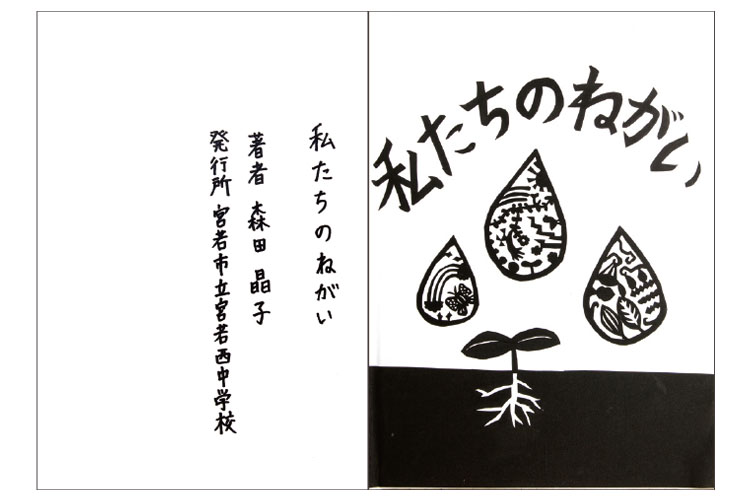 私たちのねがい
私たちのねがい
著者 森田 晶子
発行所 宮若市立宮若西中学校